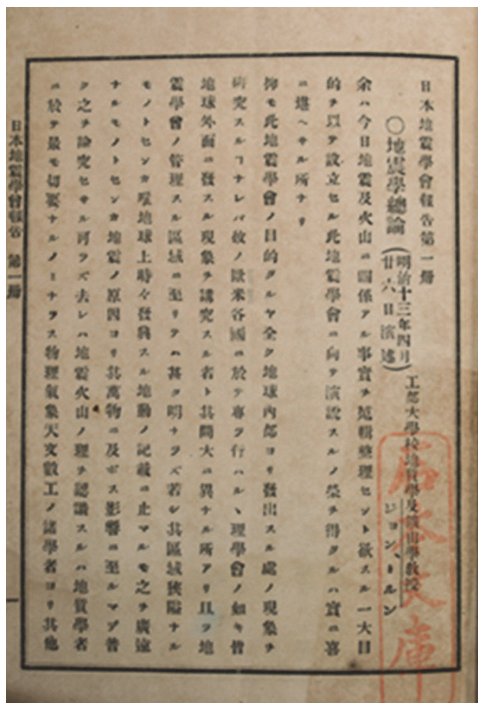 日本地震學會報告第一册
〇地震學總論(明治十三年四月廿六日演述)工部大學校地質學及鑛山學教授
ジョン、ミルン
余ハ今日地震及火山ニ關係アル事實ヲ蒐輯整理セント欲スル一大目
的ヲ以テ設立セル此地震學會ニ向テ演説スルノ榮ヲ得タルハ實ニ喜
ニ堪ヘサル所ナリ
抑モ此地震學會ノ目的タルヤ全ク地球内部ヨリ發出スル處ノ現象ヲ
研究スルコナレバ彼ノ歐米各國ニ於テ專ラ行ハルヽ理學會ノ如キ皆
地球外面ニ發スル現象ヲ講究スル者ト其間大ニ異ナル所アリ且ツ地
震學會ノ管理スル區域ニ至リテハ甚タ明ナラズ若シ其區域狹隘ナル
モノトセンカ唯地球上時々發興スル地動ノ記載ニ止マルモ之ヲ廣遠
ナルモノトセンカ地震ノ原因ヨリ其萬物ニ及ボス影響ニ至ルマデ普
ク之ヲ論究セサル可ラズ去レハ地震火山ノ理ヲ認識スルハ地質學者
ニ於テ最モ切要ナルノミナラス物理氣象天文數工ノ諸學者ヨリ其他
日本地震學會報告 第一册
一
文庫